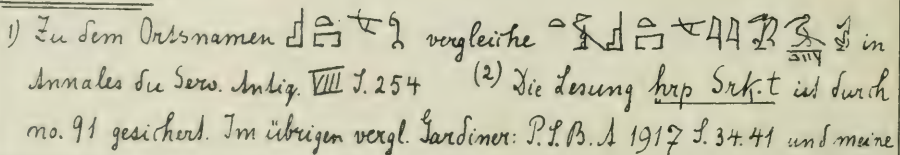 1) Zu dem Ortsnamen vergleiche in
Annales du Serv. Antiq. VIII S. 254 (2) Die Lesung hrp Srk.t ist durch
no. 91 gesichert. Im übrigen vergl. Gardiner: P.S.B.A 1917 S. 34. 41 und meine